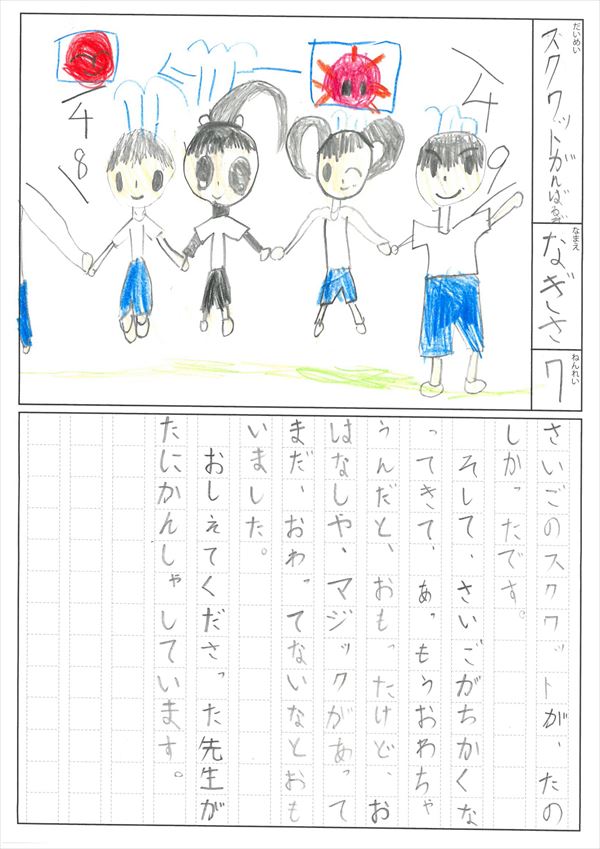 だいめい
スクワットがんばるぞ
なまえ
なぎさ
ねんれい
7
49
48
さいごのスクワットが、たの
しかったです。
そして、さいごがちかくな
ってきて、あっ、もうおわちゃ
うんだと、おもったけど、お
はなしや、マジックがあって
まだ、おわってないなとおも
いました。
おしえてくださった先生が
たにかんしゃしています。